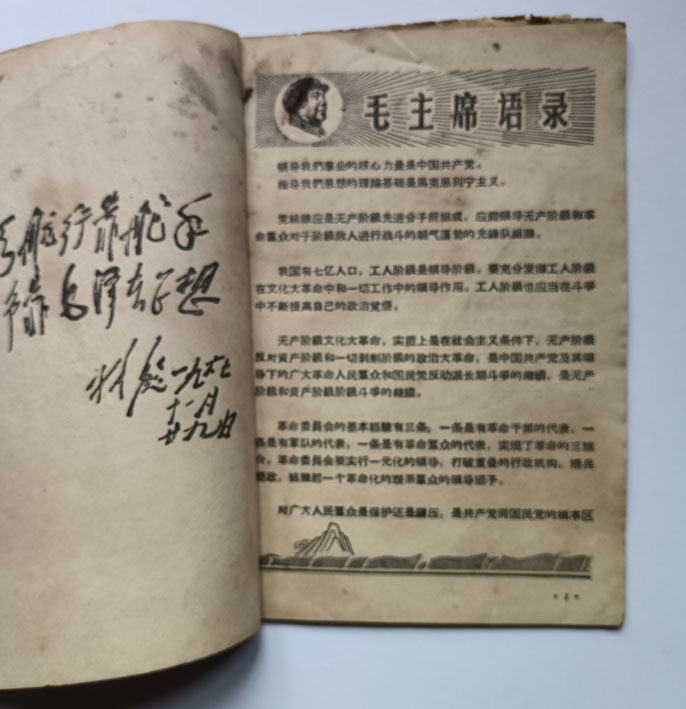 航行靠舵手
命靠毛泽东思想
林彪 一九六七
十一月
廿九日
毛主席语录
領导我們事业的核心力量是中国共产党。
指导我們思想的理論基础是馬克思列宁主义。
党組織应是无产阶級先进分子所組成，应能領导无产阶級和革
命羣众对于阶級敌人进行战斗的朝气蓬勃的先鋒队組織。
我国有七亿人口，工人阶級是領导阶級。要充分发揮工人阶級
在文化大革命中和一切工作中的領导作用。工人阶級也应当在斗爭
中不断提高自己的政治觉悟。
无产阶級文化大革命，实质上是在社会主义条件下，无产阶級
反对資产阶級和一切剝削阶級的政治大革命，是中国共产党及其領
导下的广大革命人民羣众和国民党反动派长期斗爭的継續，是无产
阶級和資产阶級阶級斗爭的継續。
革命委員会的基本經驗有三条：一条是有革命干部的代表，一
条是有軍队的代表，一条是有革命羣众的代表，实現了革命的三結
合。革命委員会要实行一元化的領导，打破重叠的行政机构，精兵
簡政，組織起一个革命化的联系羣众的領导班子。
对广大人民羣众是保护还是鎭压，是共产党同国民党的根本区
· 1 ·